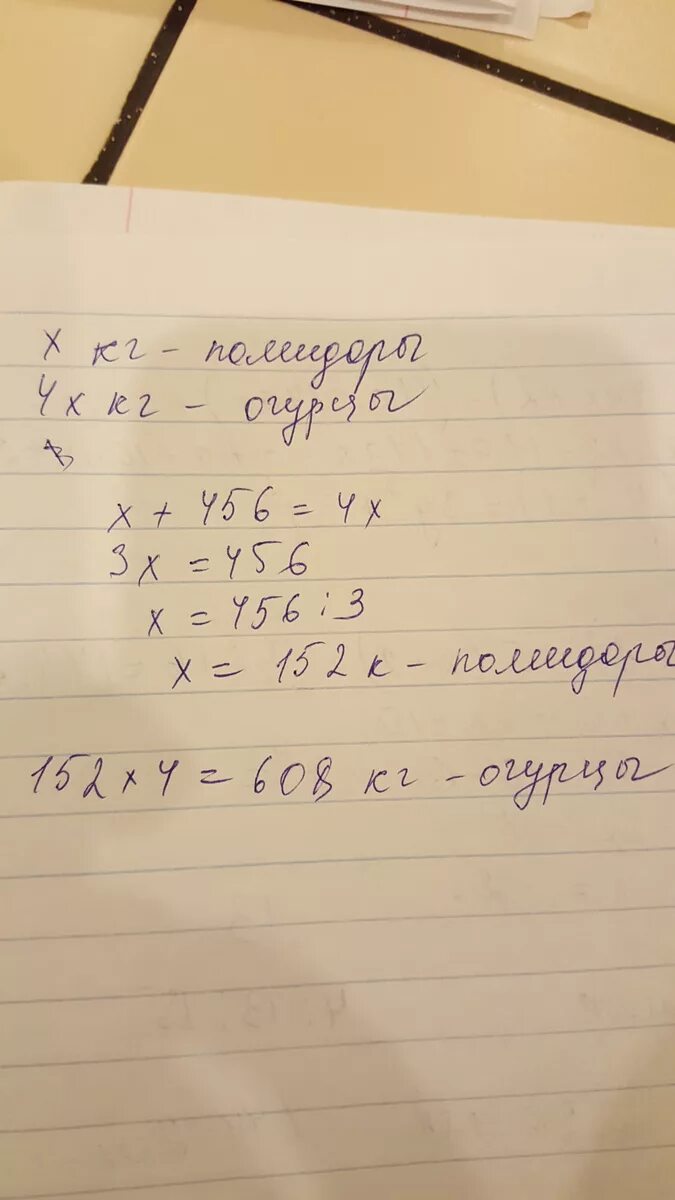 x кг - помидоры
4x кг - огурцы
x + 456 = 4x
3x = 456
x = 456 : 3
x = 152 к - помидоры
152 x 4 = 608 кг - огурцы